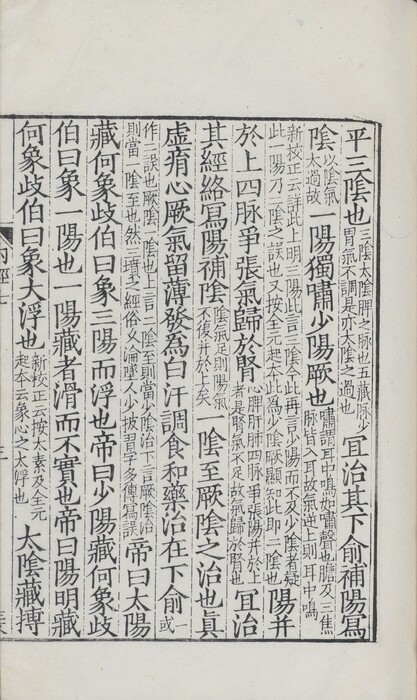 平三陰也三陰太陰脾之脉也五藏脉少胃氣不調是亦太陰之過也宜治其下俞補陽寫
陰以陰氣太過故一陽獨嘯少陽厥也嘯謂耳中鳴如嘯聲也膽及三焦脉皆入耳故氣逆上則耳中鳴
新校正云詳此上明三陽此言三陰今此再言少陽而不及少陰者疑此一陽乃二陰之誤也又按全元起本此爲少陰厥顯知此即二陰也陽并
於上四脉爭張氣歸於腎心脾肝肺四脉爭張陽并於上者是腎氣不足故氣歸於腎也宜治
其經絡寫陽補陰陰氣足則陽氣不復并於上矣一陰至厥陰之治也眞
虛痟心厥氣留薄發爲白汗調食和藥治在下俞一或
作二誤也厥陰一陰也上言二陰至則當少陰治下言厥陰治則當一陰至也然三墳之經俗久淪墜人少披習字多傳寫誤帝曰太陽
藏何象歧伯曰象三陽而浮也帝曰少陽藏何象歧
伯曰象一陽也一陽藏者滑而不實也帝曰陽明藏
何象歧伯曰象大浮也新校正云按太素及全元起本云象心之太浮也太陰藏搏